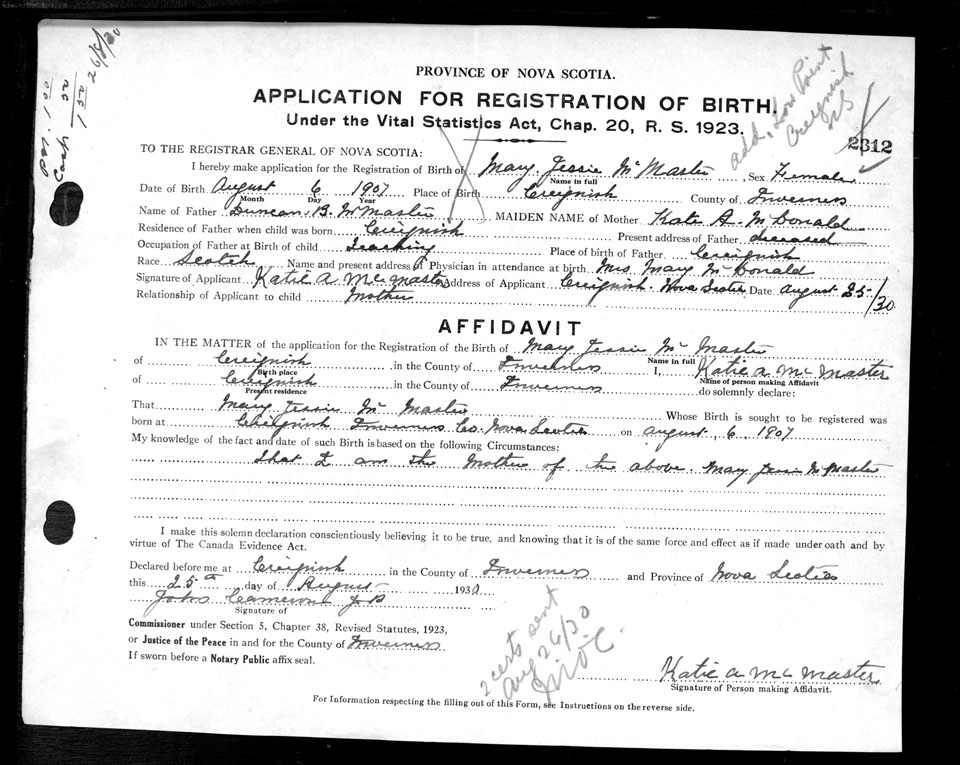 PROVINCE OF NOVA SCOTIA.
APPLICATION FOR REGISTRATION OF BIRTH.
Under the Vital Statistics Act, Chap. 20, R. S. 1923.
add, Low Point
Creignish
NS
26/8/30
Cash 1.00
2312
TO THE REGISTRAR GENERAL OF NOVA SCOTIA:
I hereby make application for the Registration of Birth of Mary Jessie McMaster, Sex Female
Name in full
Date of Birth August 6 1907 Place of Birth Creignish County of Inverness
Month Day Year
Name of Father Duncan B. McMaster MAIDEN NAME of Mother Kate A. McDonald
Residence of Father when child was born Creignish Present address of Father deceased
Occupation of Father at Birth of child Teaching Place of birth of Father Creignish
Race Scotch Name and present address of Physician in attendance at birth Mrs. Mary McDonald
Signature of Applicant Katie A McMaster Address of Applicant Creignish. Nova Scotia Date August 25/30
Relationship of Applicant to child Mother
AFFIDAVIT
IN THE MATTER of the application for the Registration of the Birth of Mary Jessie McMaster
Name in full
of Creignish in the County of Inverness I, Katie A McMaster
Birth place Name of person making Affidavit
of Creignish in the County of Inverness do solemnly declare:
Present residence
That Mary Jessie McMaster Whose Birth is sought to be registered was
born at Creignish Inverness Co. Nova Scotia on August, 6 1907
My knowledge of the fact and date of such Birth is based on the following Circumstances:
That I am the Mother of the above. Mary Jessie McMaster
I make this solemn declaration conscientiously believing it to be true, and knowing that it is of the same force and effect as if made under oath and by
virtue of The Canada Evidence Act.
Declared before me at Creignish in the County of Inverness and Province of Nova Scotia
this 25th day of August 1930
John Cameron J P
Signature of
Commissioner under Section 5, Chapter 38, Revised Statutes, 1923,
or Justice of the Peace in and for the County of Inverness
If sworn before a Notary Public affix seal.
2 certs sent
Aug 26/30
Katie A McMaster
Signature of Person making Affidavit.
For Information respecting the filling out of this Form, see Instructions on the reverse side.